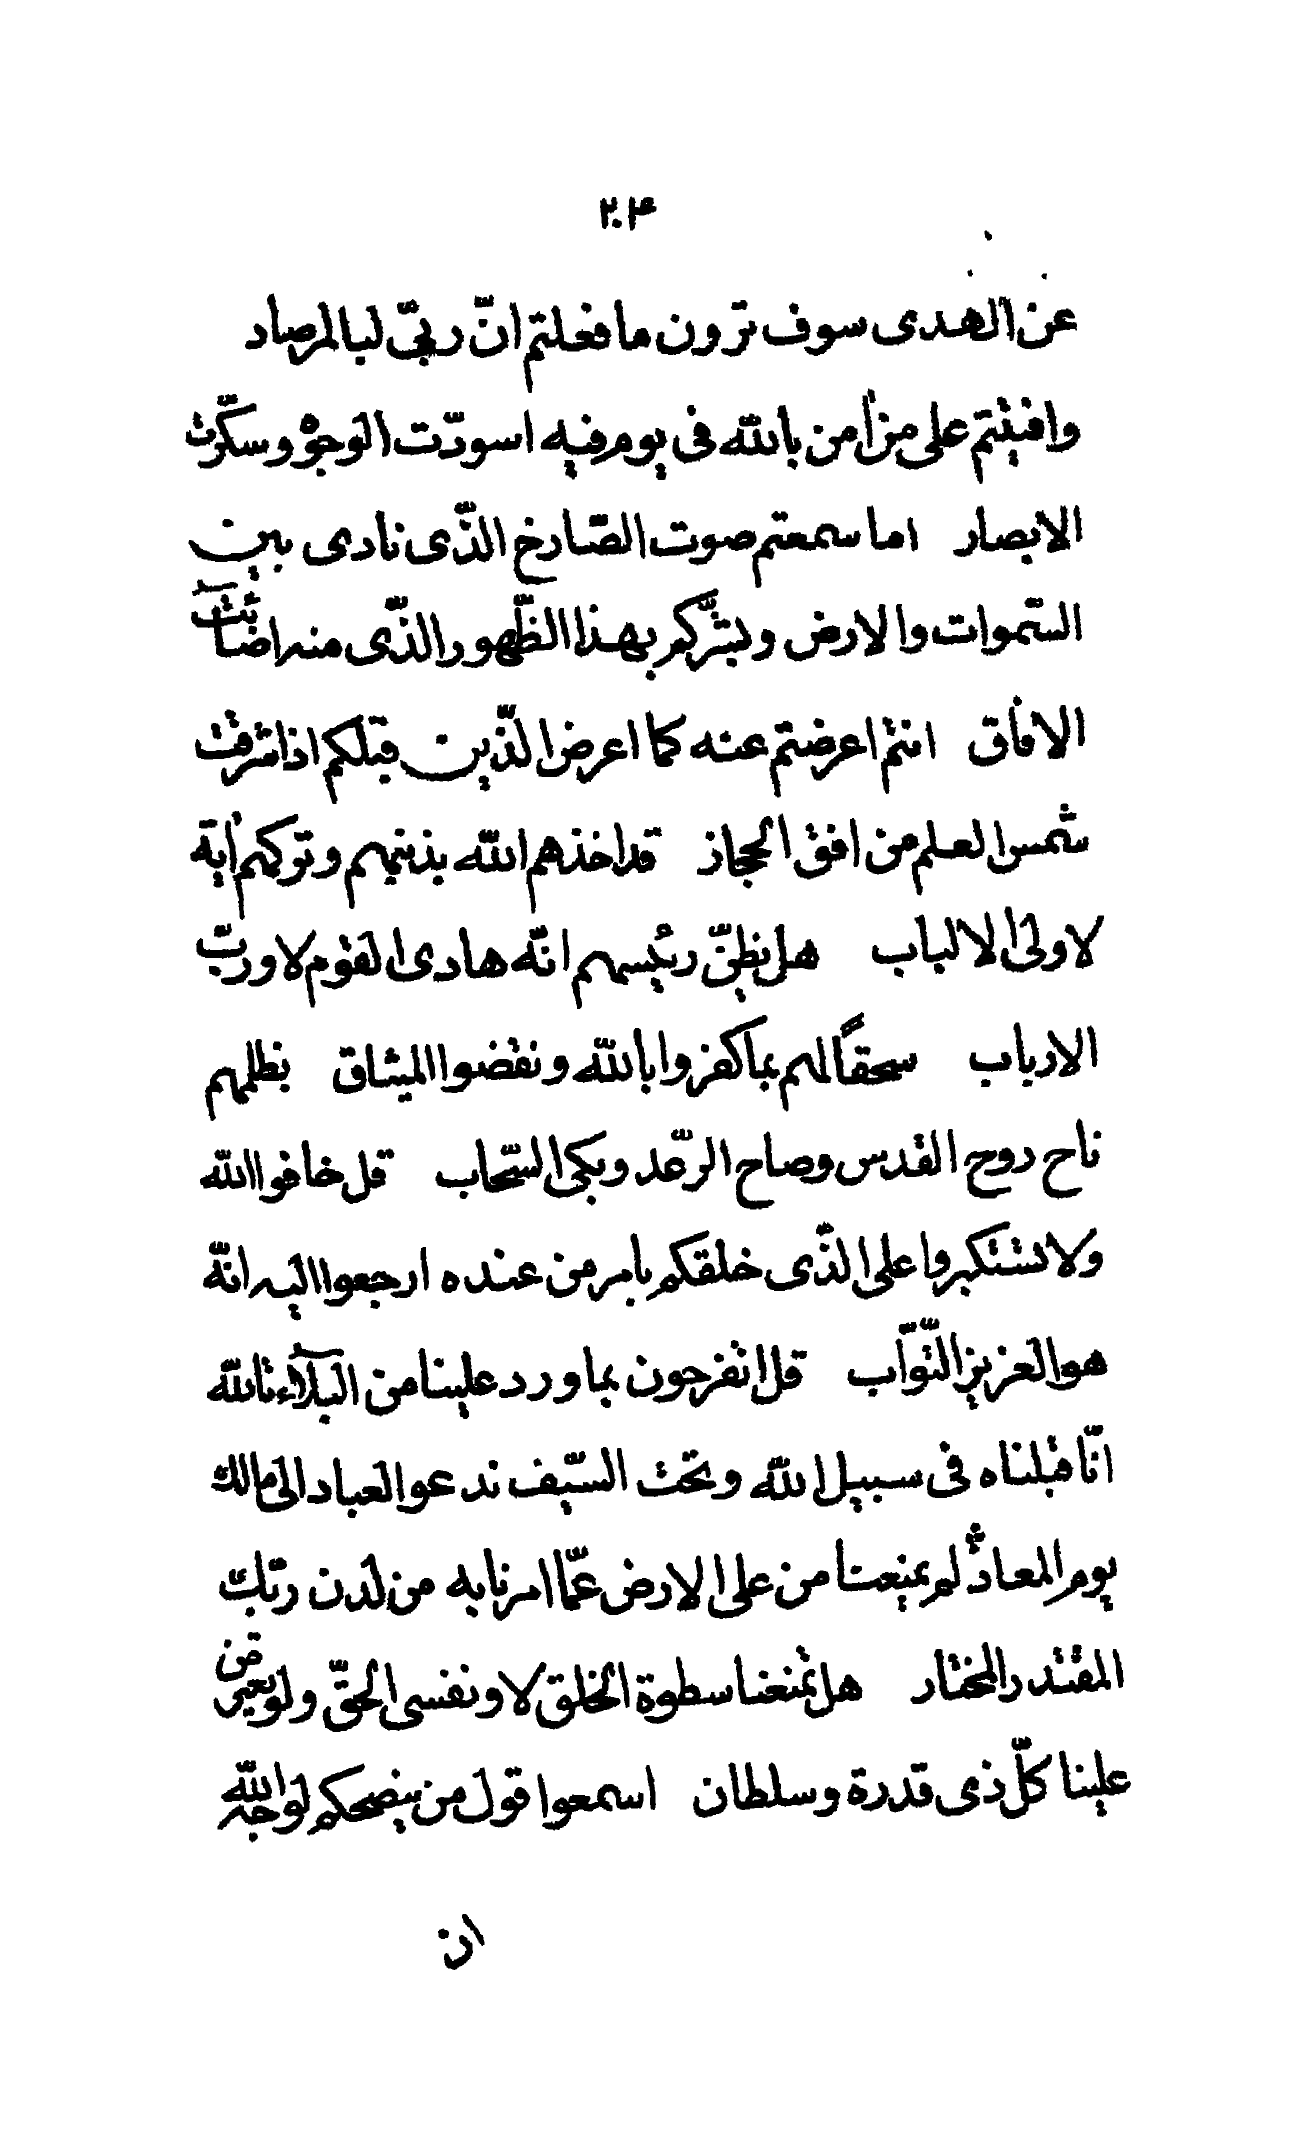 ۲۰۴
عن الهدى سوف ترون ما فعلتم انّ ربّى لبالمرصاد
وافتيتم على من اٰمن بالله فى يوم فيه اسودّت الوجوه وسكّرت
الابصار اما سمعتم صوت الصّارخ الّذى نادى بين
السّموات والارض وبشّركم بهذا الظّهور الّذى منه اضآئت
الافاق انتم اعرضتم عنه كما اعرض الّذين قبلكم اذ اشرقت
شمس العلم من افق الحجاز قد اخذهم الله بذنبهم وتركهم اٰية
لاولى الالباب هل يظنّ رئيسهم انّه هادى القوم لا وربّ
الارباب سحقاً لهم بما كفروا بالله ونقضوا الميثاق بظلمهم
ناح روح القدس وصاح الرّعد وبكى السّحاب قل خافوا الله
ولا تستكبروا على الّذى خلقكم بامر من عنده ارجعوا اليه انّه
هو العزيز التّوّاب قل اتفرحون بما ورد علينا من البلآء تالله
انّا قبلناه فى سبيل الله وتحت السّيف ندعو العباد الى مالك
يوم المعاد لم يمنعنا من على الارض عمّا امرنا به من لدن ربّك
المقتدر المختار هل تمنعنا سطوة الخلق لا ونفسى الحقّ ولو يعترض
علينا كلّ ذى قدرة وسلطان اسمعوا قول من ينصحكم لوجه الله
ان